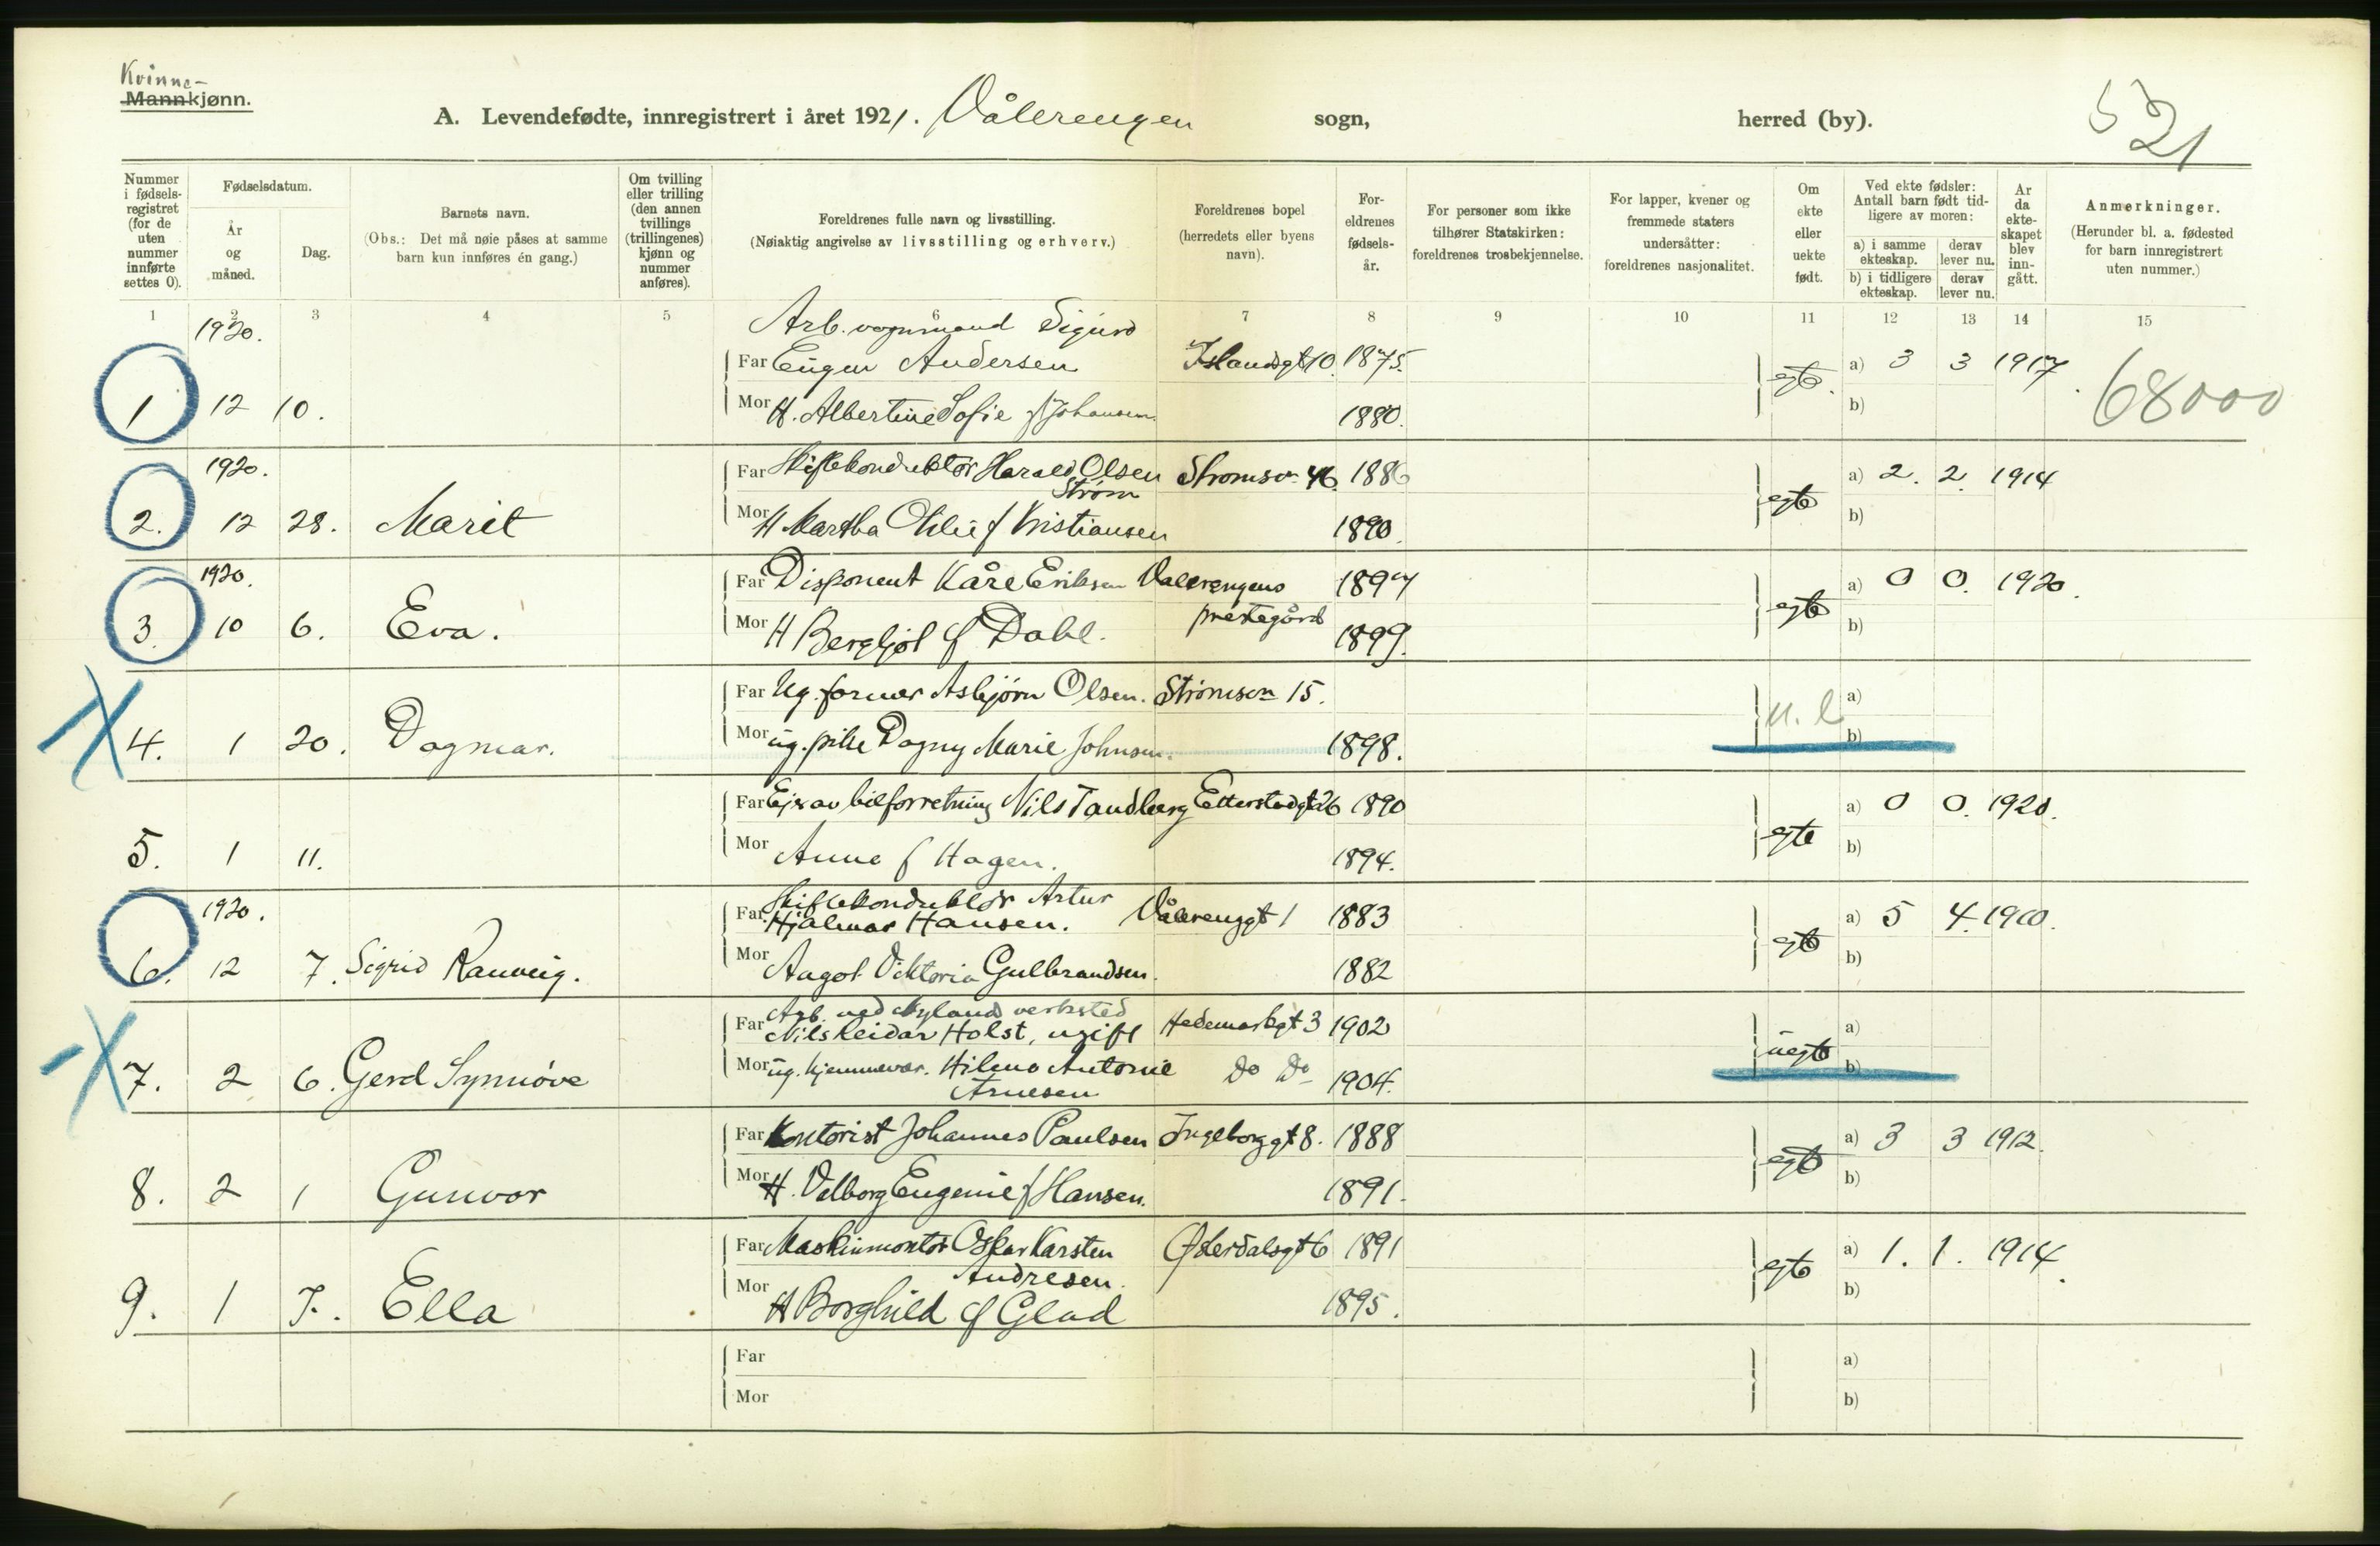 Kvinne-
Mannkjønn.
A. Levendefødte, innregistrert i året 1921. Vålerengen sogn, herred (by).
521
Nummer i fødselsregistret (for de uten nummer innførte settes 0).
Fødselsdatum.
År og måned.
Dag.
Barnets navn.
(Obs.: Det må nøie påses at samme barn kun innføres én gang.)
Om tvilling eller trilling (den annen tvillings (trillingenes) kjønn og nummer anføres).
Foreldrenes fulle navn og livsstilling.
(Nøiaktig angivelse av livsstilling og erhverv.)
Foreldrenes bopel (herredets eller byens navn).
Foreldrenes fødselsår.
For personer som ikke tilhører Statskirken: foreldrenes trosbekjennelse.
For lapper, kvener og fremmede staters undersåtter: foreldrenes nasjonalitet.
Om ekte eller uekte født.
Ved ekte fødsler: Antall barn født tidligere av moren:
a) i samme ekteskap. derav lever nu.
b) i tidligere ekteskap. derav lever nu.
Ar da ekteskapet blev inngått.
Anmerkninger.
(Herunder bl. a. fødested for barn innregistrert uten nummer.)
1 2 3 4 5 6 7 8 9 10 11 12 13 14 15
1920. Arb. vognmand Sigurd
Far Eugen Andersen Islandsgt 10 1875. a) 3 3 1917
1 12 10. egte. 68000
Mor H. Albertine Sofie f Johansen. 1880. b)
1920. Far Skiftekonduktør Harald Olsen Strømsv 46. 1886 a) 2. 2. 1914
Strøm
2. 12 28. Marit egte
Mor H Martha f Kristiansen 1890. b)
1920. Far Disponent Kåre Eriksen Valerengens 1897 a) 0 0. 1920.
prestegård
3. 10 6. Eva. egte
Mor H Bergljot f Dahl. 1899. b)
Far Ug. former Asbjørn Olsen. Strømsvn 15. a)
4. 1 20. Dagmar. u. e
Mor ug. pike Dagny Marie Johnsen. 1898. b)
Far Ejer av bilforretning Nils Tandberg Etterstadgt 26 1890 a) 0 0. 1920.
5. 1 11. egte
Mor Anna f Hagen. 1894. b)
1920. Skiftekonduktør Artur
Far Hjalmar Hansen. Vålerenggt 1 1883 a) 5 4. 1910.
6. 12 7. Sigrid Rauveig. egte
Mor Aagot Viktoria Gulbrandsen. 1882 b)
Arb. ved Nylands verksted
Far Nils Reidar Holst, ugift Hedemarksgt 3 1902 a)
7. 2 6. Gerd Synnøve uegte
Mor ug. hjemmevær. Hilma Antonie do do 1904. b)
Arnesen
Far Kontorist Johannes Paulsen Ingeborggt 8. 1888 a) 3 3 1912.
8. 2 1 Gunvor egte
Mor H. Valborg Eugenie f Hansen. 1891. b)
Far Maskinmontør Oskar Karsten Østerdalsgt 6 1891 a) 1. 1. 1914.
Andresen.
9. 1 7. Ella egte
Mor H Borghild f Glad 1895. b)
Far a)
Mor b)